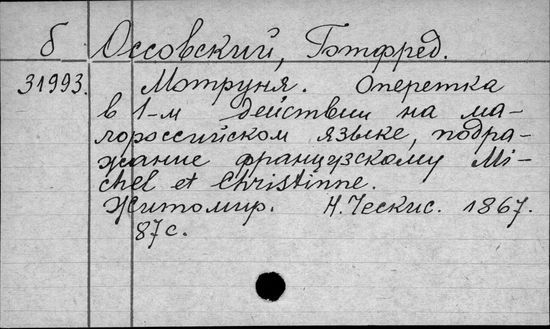 б Оссовский, Готфред.
31993. Мотруня. Оперетка
в 1-м действии на ма-
лороссийском языке, подра-
жание французскому Mi-
chel et Christinne.
Житомир. Н. Ческис. 1867.
87 с.